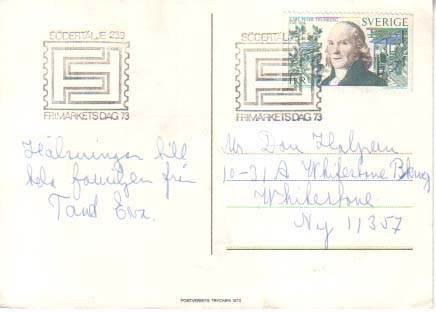 SÖDERTÄLJE 23.9
FRIMÄRKETS DAG 73
SÖDERTÄLJE 23.9
FRIMÄRKETS DAG 73
CARL PETER THUNBERG
SVERIGE
1 KR
Hälsningar till
hela familjen från
Tant Eva.
Mr Don Halpern
10-21 A Whitestone
Whitestone
Ny 11357
POSTVERKETS TRYCKERI 1973